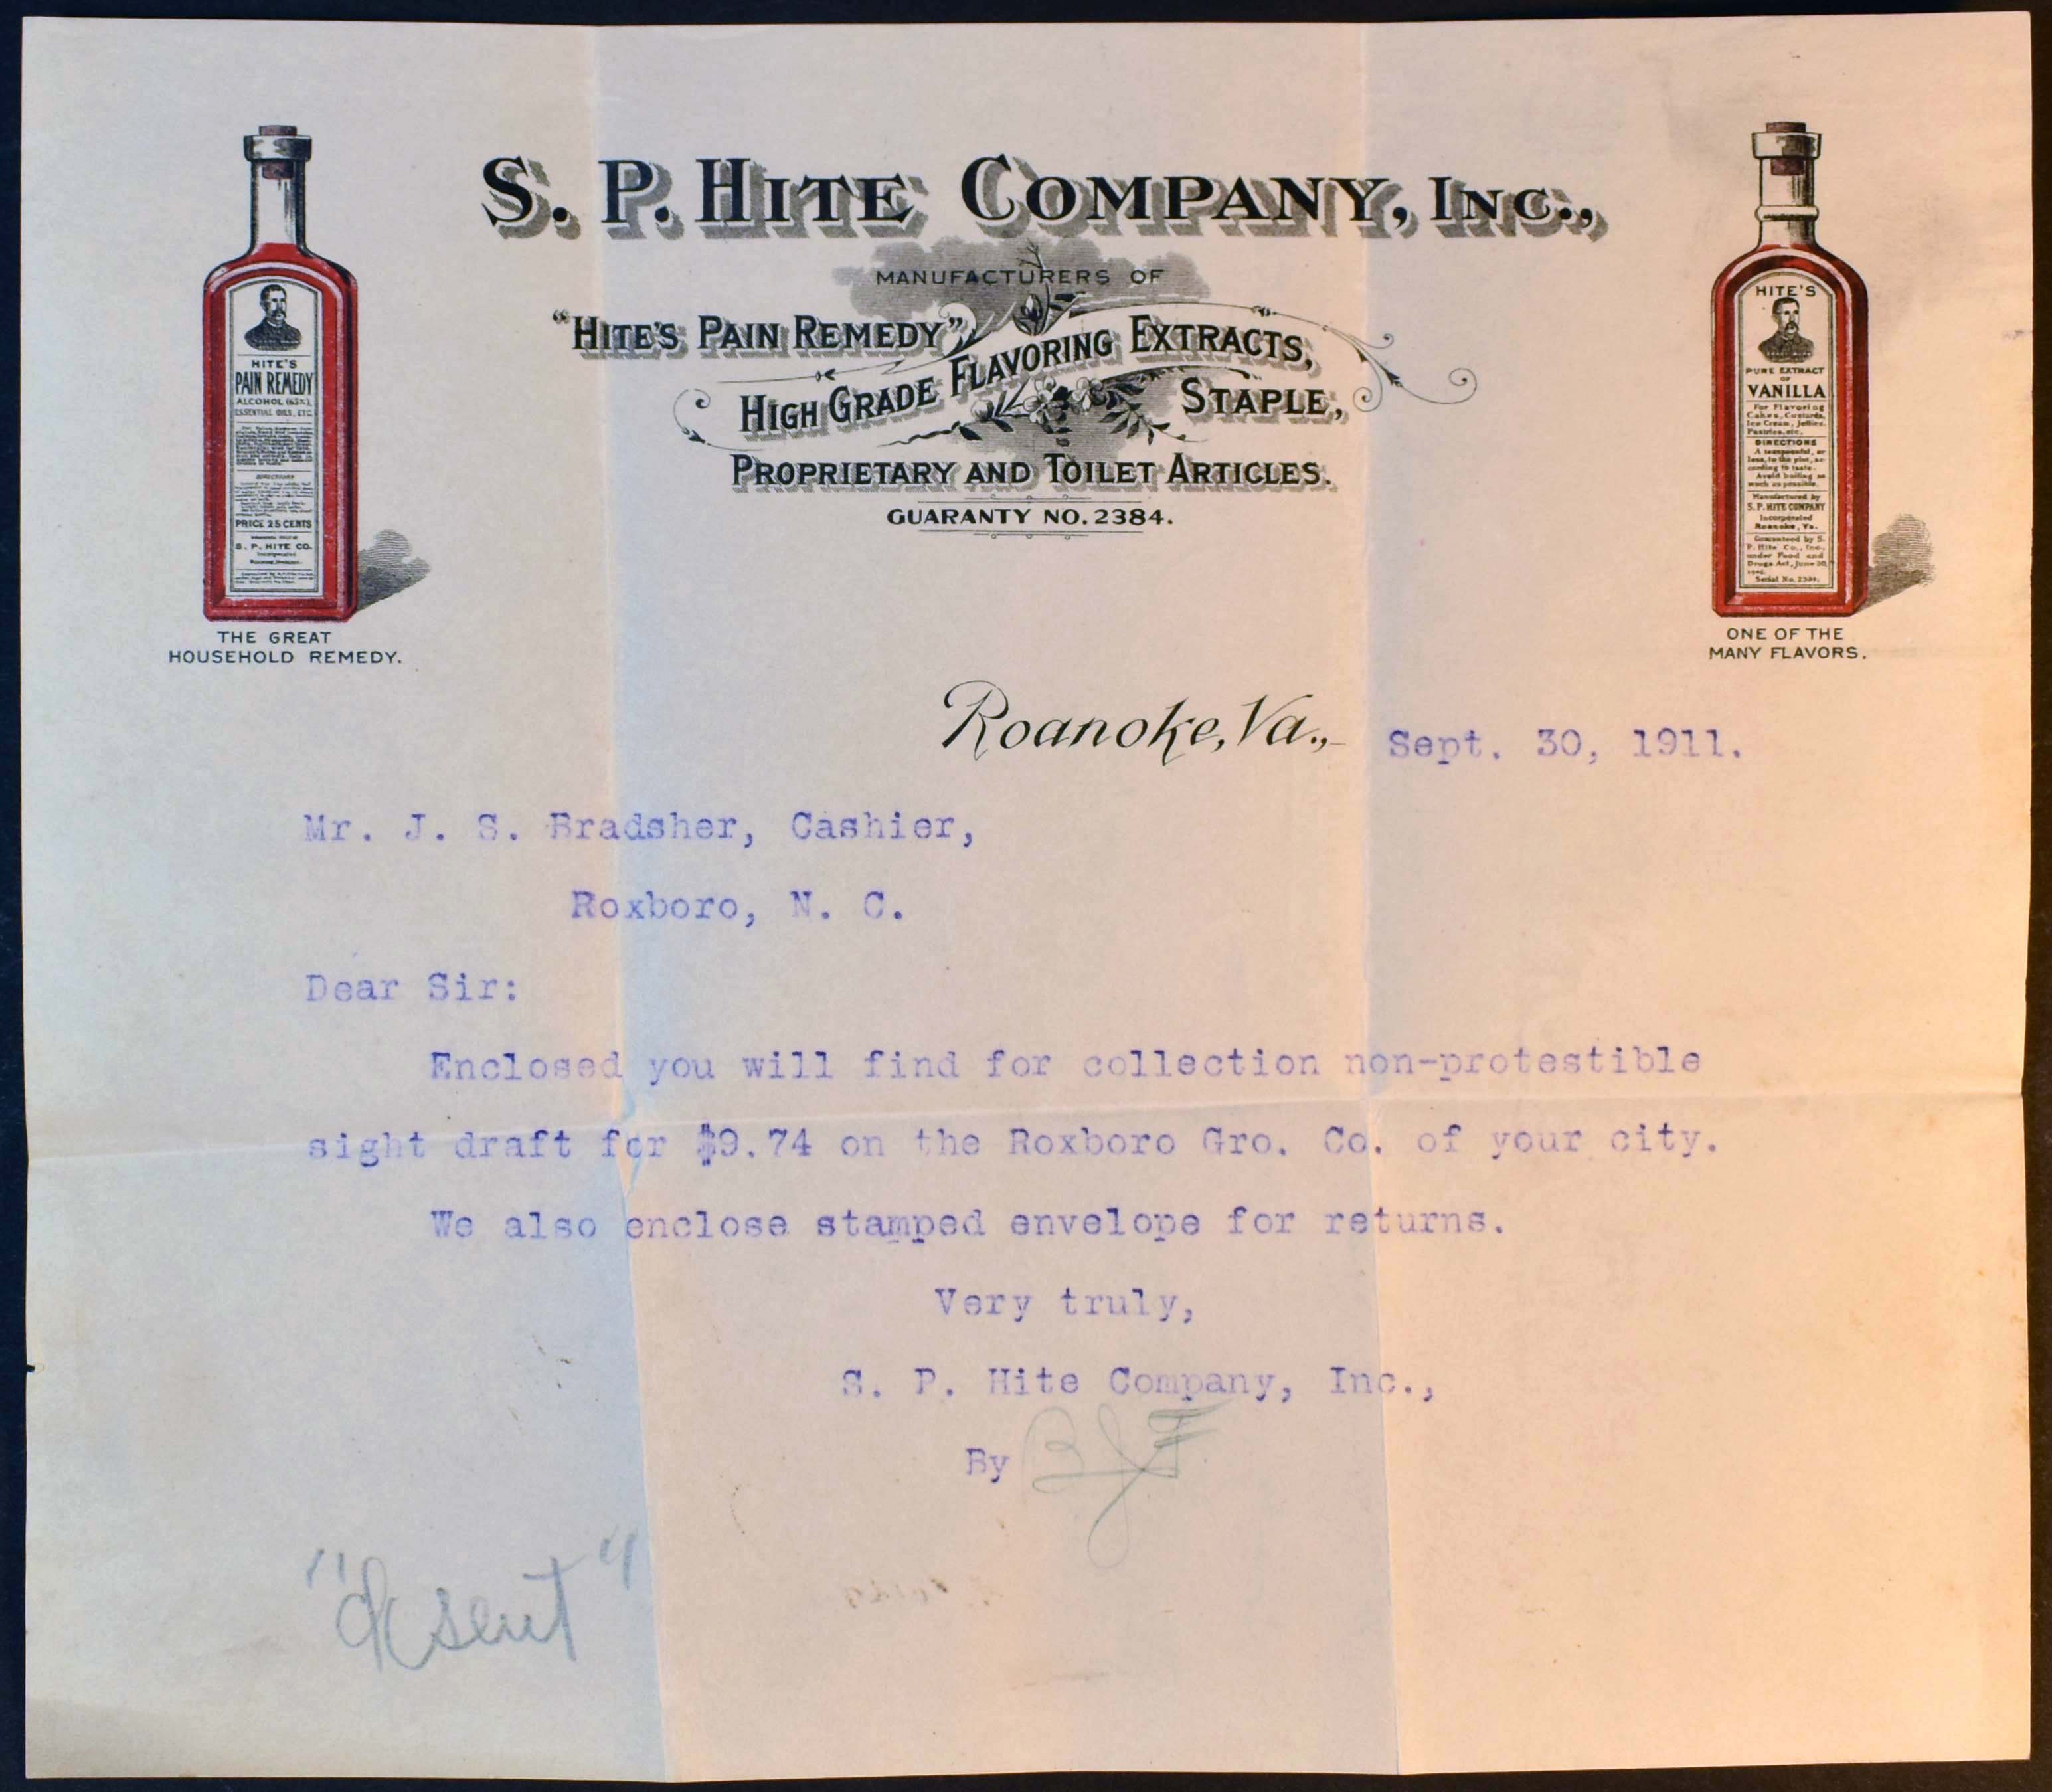 S. P. HITE COMPANY, INC.,
MANUFACTURERS OF
"HITE'S PAIN REMEDY",
HIGH GRADE FLAVORING EXTRACTS,
STAPLE,
PROPRIETARY AND TOILET ARTICLES.
GUARANTY NO. 2384.
HITE'S
PAIN REMEDY
ALCOHOL (65%),
ESSENTIAL OILS, ETC.
DIRECTIONS
PRICE 25 CENTS
S. P. HITE CO.
Incorporated
THE GREAT
HOUSEHOLD REMEDY.
HITE'S
PURE EXTRACT
OF
VANILLA
For Flavoring
Cakes, Custards,
Ice Cream, Jellies,
Pastries, etc.
DIRECTIONS
A teaspoonful, or
less, to the pint, ac-
cording to taste.
Avoid boiling as
much as possible.
Manufactured by
S. P. HITE COMPANY
Incorporated
Roanoke, Va.
Guaranteed by S.
P. Hite Co., Inc.
under Food and
Drugs Act, June 30,
1906.
Serial No. 2384.
ONE OF THE
MANY FLAVORS.
Roanoke, Va., Sept. 30, 1911.
Mr. J. S. Bradsher, Cashier,
Roxboro, N. C.
Dear Sir:
Enclosed you will find for collection non-protestible
sight draft for $9.74 on the Roxboro Gro. Co. of your city.
We also enclose stamped envelope for returns.
Very truly,
S. P. Hite Company, Inc.,
By
sent"